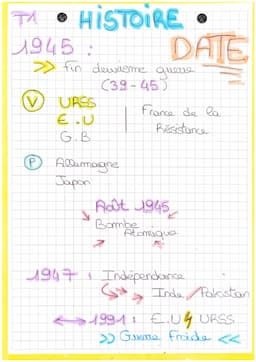 T1 HISTOIRE
DATE
1945 :
>> Fin deuxième guerre
(39-45)
V URSS
E.U
G.B
France de la
Résistance
P Allemagne
Japon
Août 1945
Bombe
Atomique
1947 : Indépendance
Inde / Pakistan
<-> 1991 : E.U URSS
>> Guerre Froide <<